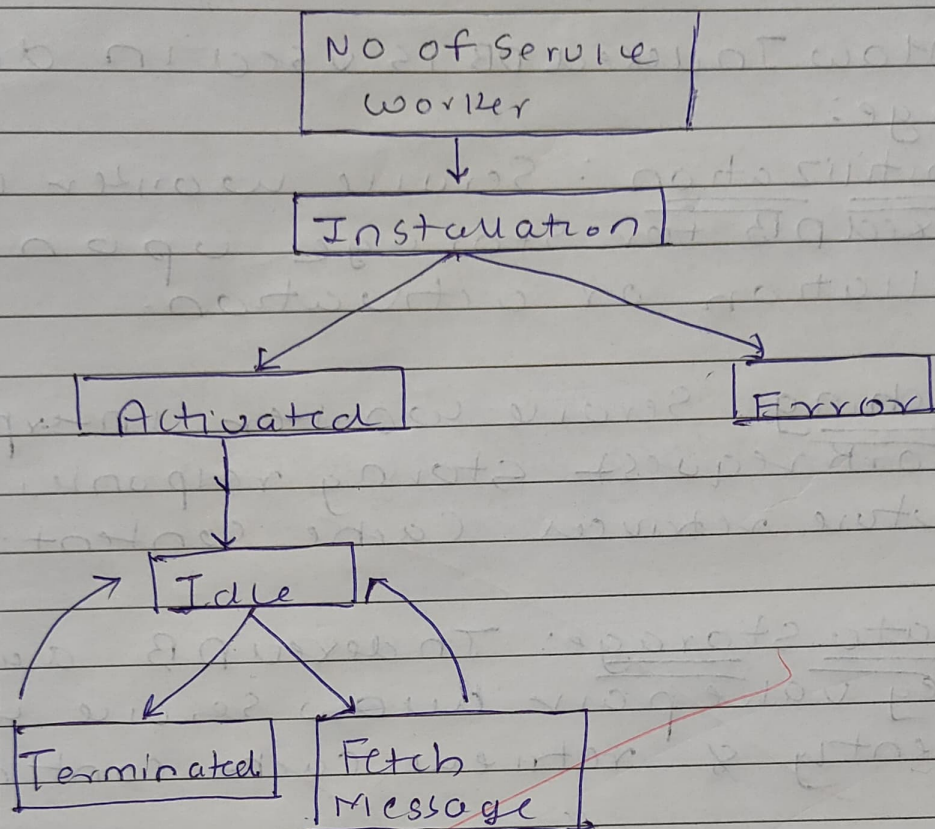 No of Service
worker
Installation
Activated
Error
Idle
Terminated
Fetch
Message